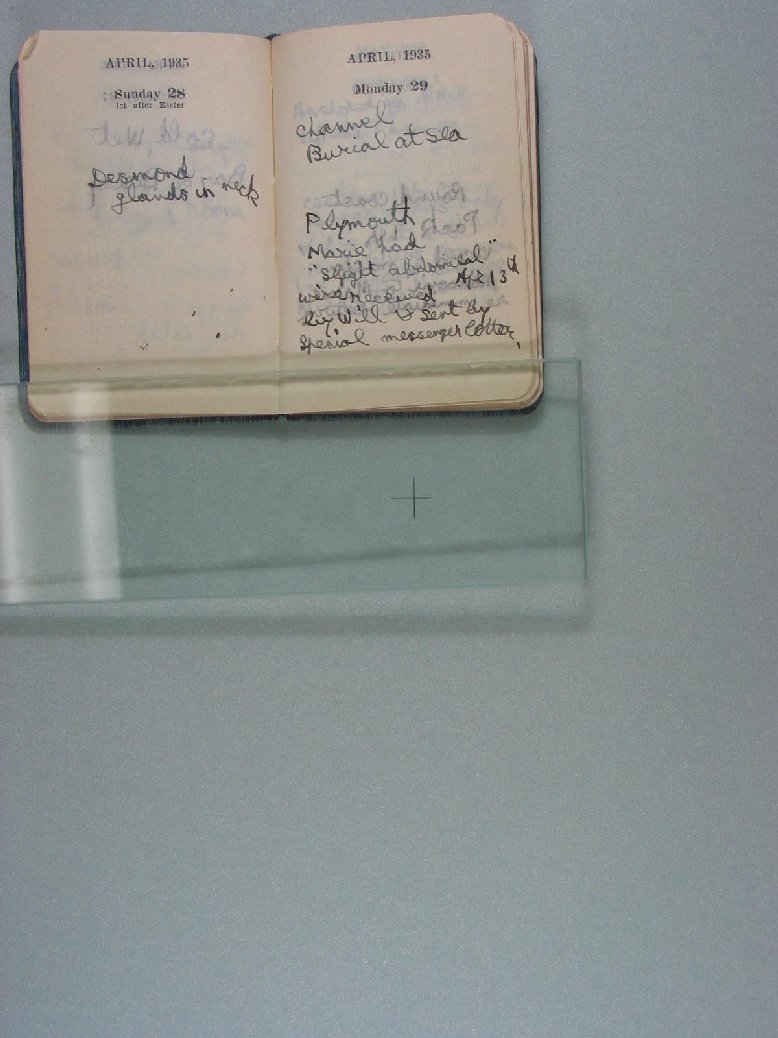 APRIL, 1935
Sunday 28
1st after Easter
Desmond
glands in neck
APRIL, 1935
Monday 29
Channel
Burial at Sea
Plymouth
Marie had
"slight abdominal"
received Apr 13th
by Will & sent by
Special messenger letter.